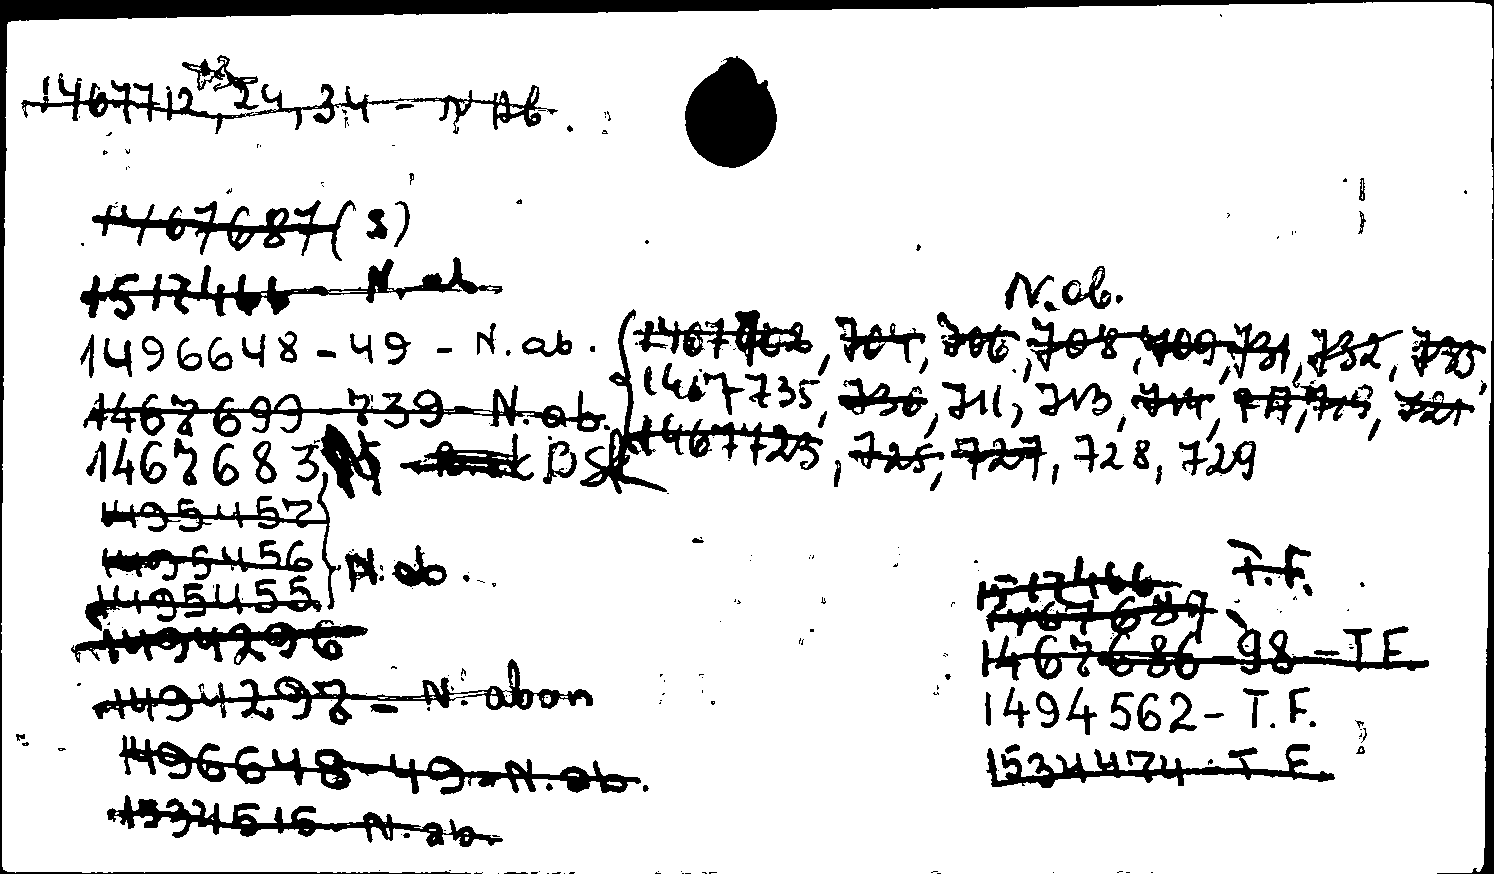 1467712, 24, 34 - N Ab.
1467687 (s)
1517466 - N. ab.
1496648 - 49 - N. ab.
N. ab.
1467702, 704, 706, 708, 709, 731, 732, 733,
1467699 - 739 - N. ab.
1467735, 736, 711, 713, 714, 717, 719, 721
1467683, BSR
1467723, 725, 727, 728, 729
1495457
1495456 N. ab.
1495455
1494296
1494297 - N. abon
1496648 - 49 - N. ab.
1534515 - N. ab.
1517466 T.F.
1467689
1467686 - 98 - T F.
1494562 - T. F.
1534474 - T F